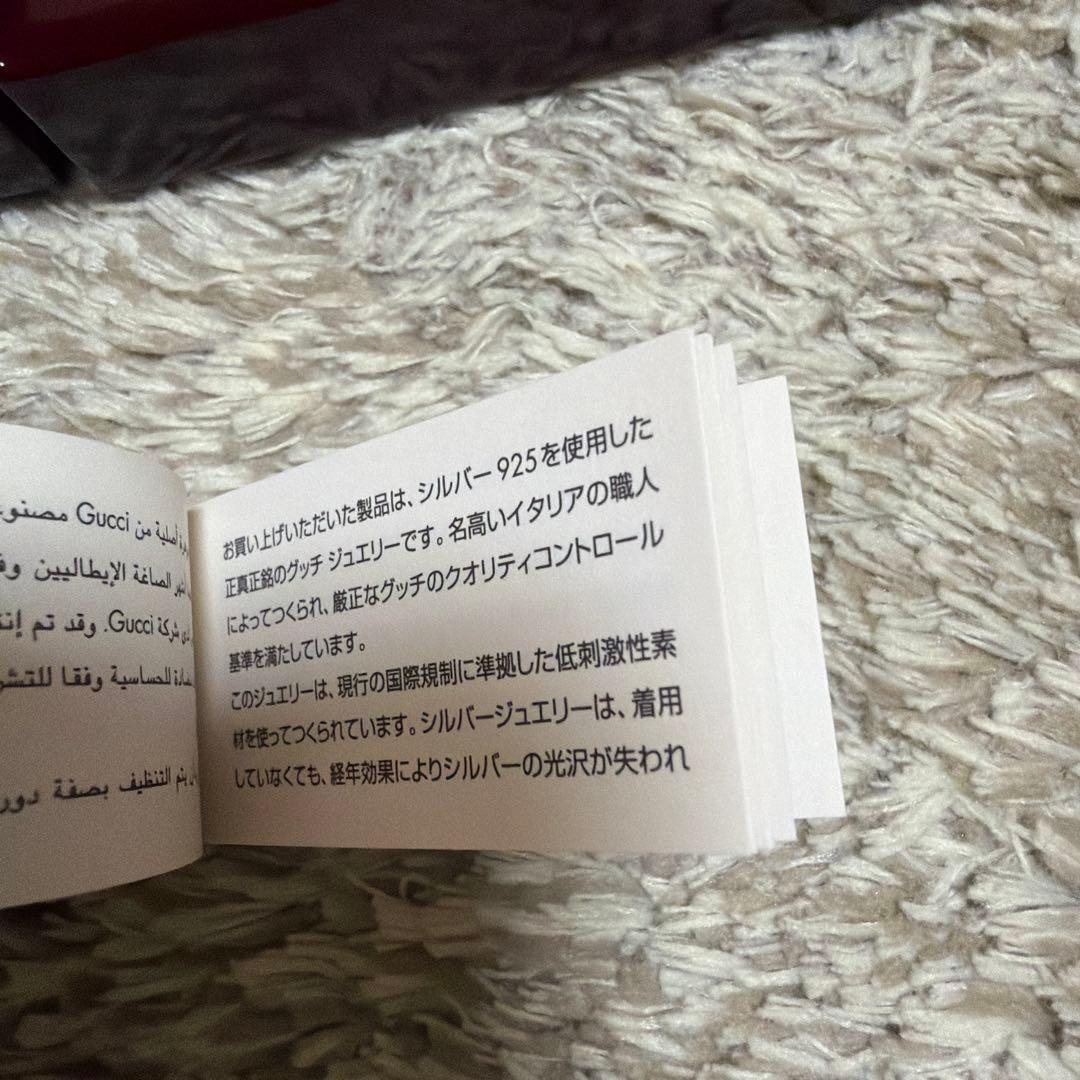 أصلية من Gucci
الصاغة الإيطاليين
شركة Gucci. وقد تم
للحساسية وفقا
يتم التنظيف بصفة
お買い上げいただいた製品は、シルバー925を使用した
正真正銘のグッチ ジュエリーです。名高いイタリアの職人
によってつくられ、厳正なグッチのクオリティコントロール
基準を満たしています。
このジュエリーは、現行の国際規制に準拠した低刺激性素
材を使ってつくられています。シルバージュエリーは、着用
していなくても、経年効果によりシルバーの光沢が失われ